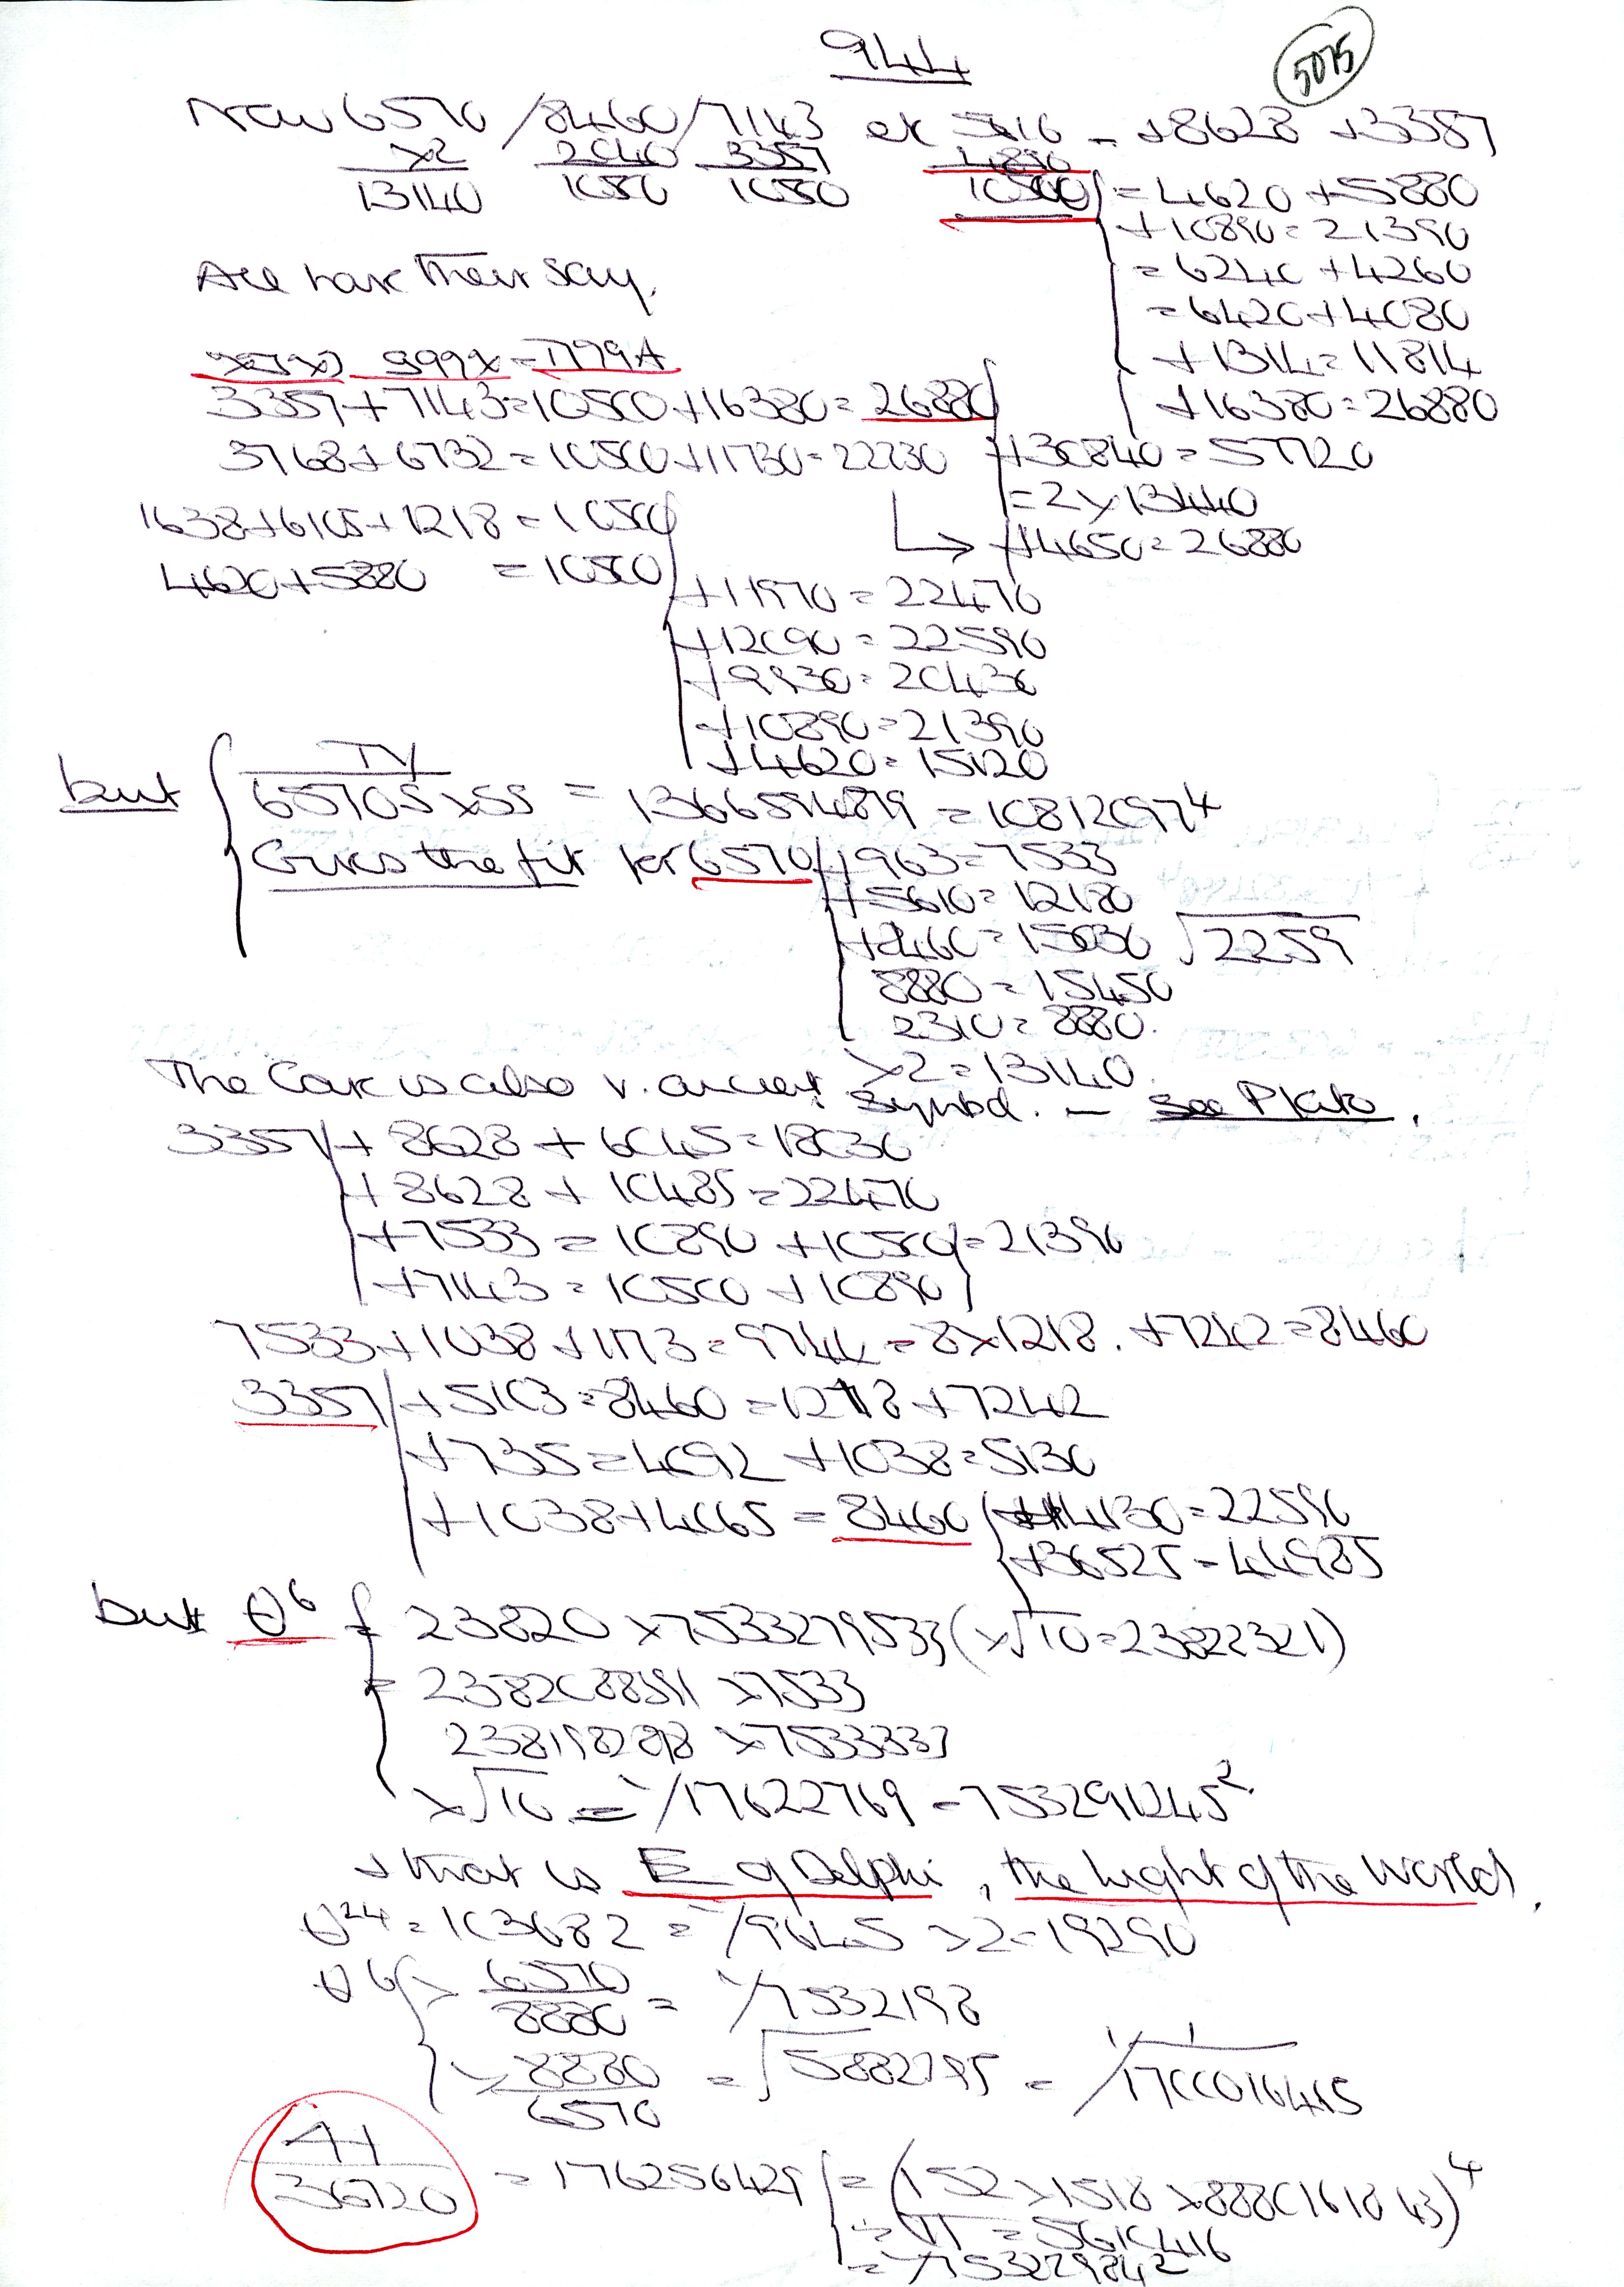 944
5075
Now 6570 / 8460 / 7143 or 5616 - +8628 +3357
x2 2040 3357 4890
13140 10500 1050 10500 = 4620 +5880
+10890 = 21390
All have their say. = 6240 +4260
= 6420 +4080
+1314 = 11814
3357 + 7143 = 10500 +16380 = 26880 +16380 = 26880
3768 + 6732 = 10500 +11730 = 22230 +30840 = 57720
= 2 x 13440
1638 + 6105 + 1218 = 1050 → +4650 = 26880
4620 + 5880 = 10500
+11970 = 22470
+12090 = 22590
+9930 = 20430
+10890 = 21390
+4620 = 15120
but 65705 x 55 = 1366594879 = 10812097⁴
Gives the fit for 6570 / +963 = 7533
+5610 = 12180
+8460 = 15030 √2259
8880 = 15450
2310 = 8880.
x2 = 13140.
The Cave is also v. ancient symbol. - See Plato.
3357 / + 8628 + 6045 = 18030
+ 8628 + 10485 = 22470
+7533 = 10890 +10500 = 21390
+7143 = 10500 +10890
7533 + 1038 + 1173 = 9744 = 8 x 1218. +7242 = 8460
3357 / +5103 = 8460 = 1218 + 7242
+735 = 4092 +1038 = 5130
+1038 + 4065 = 8460 +14130 = 22590
+36525 = 44985
but θ⁶ 23820 x 7533279533 (x√10 = 23822321)
= 2382088391 x 7533
238198298 x 7533333
x√10 = 1/17622769 = 753291245²
+ that is E of Delphi, the Light of the World.
θ²⁴ = 103682 = 1/9645 x2 = 19290
θ⁶ x 6570
8880 = 1/7532198
x 8880
6570 = √5882795 = 1/1700016415
36720 = 176256429 = (152 x 1518 x 8880161843)⁴
= 5610416
= 1/753279842